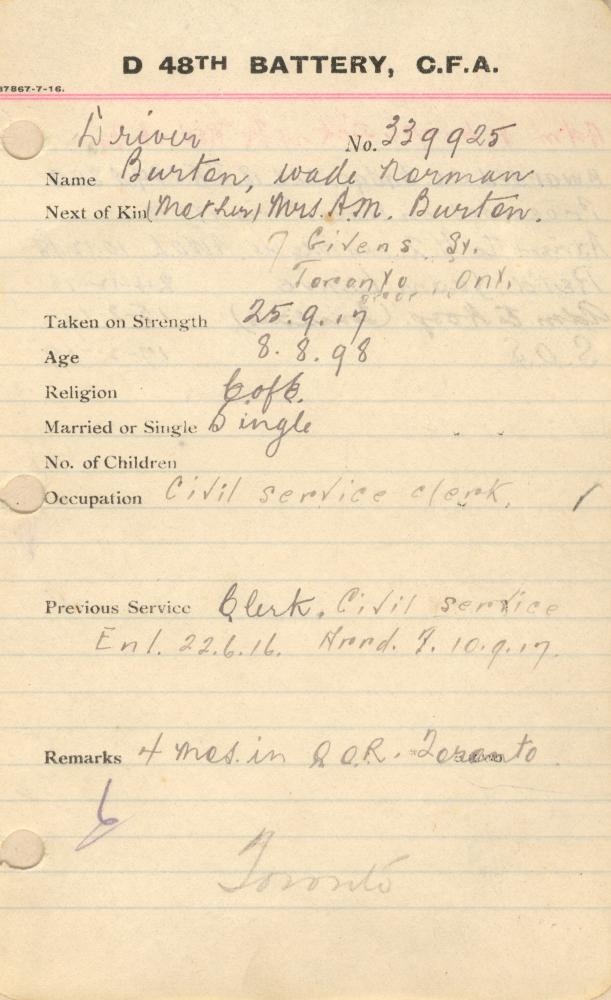 D 48TH BATTERY, C.F.A.
37867-7-16.
Driver No. 339925
Name Burton, wade Norman
Next of Kin (Mother) Mrs. A.M. Burton.
7 Givens St.
Toronto, Ont.
Taken on Strength 25.9.17
Age 8.8.98
Religion C of E.
Married or Single Single
No. of Children
Occupation Civil service clerk.
Previous Service Clerk, Civil service
Enl. 22.6.16. Arrd. F. 10.9.17.
Remarks 4 mos. in Q.O.R. Toronto
6
Toronto